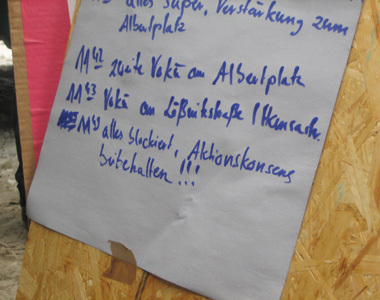 alles super, Verstärkung zum
Albertplatz
11⁴² zweite Vokü am Albertplatz
11⁴³ Vokü am Lößnitzstraße / Hansastr.
11⁴⁹ alles blockiert, Aktionskonsens
beibehalten!!!